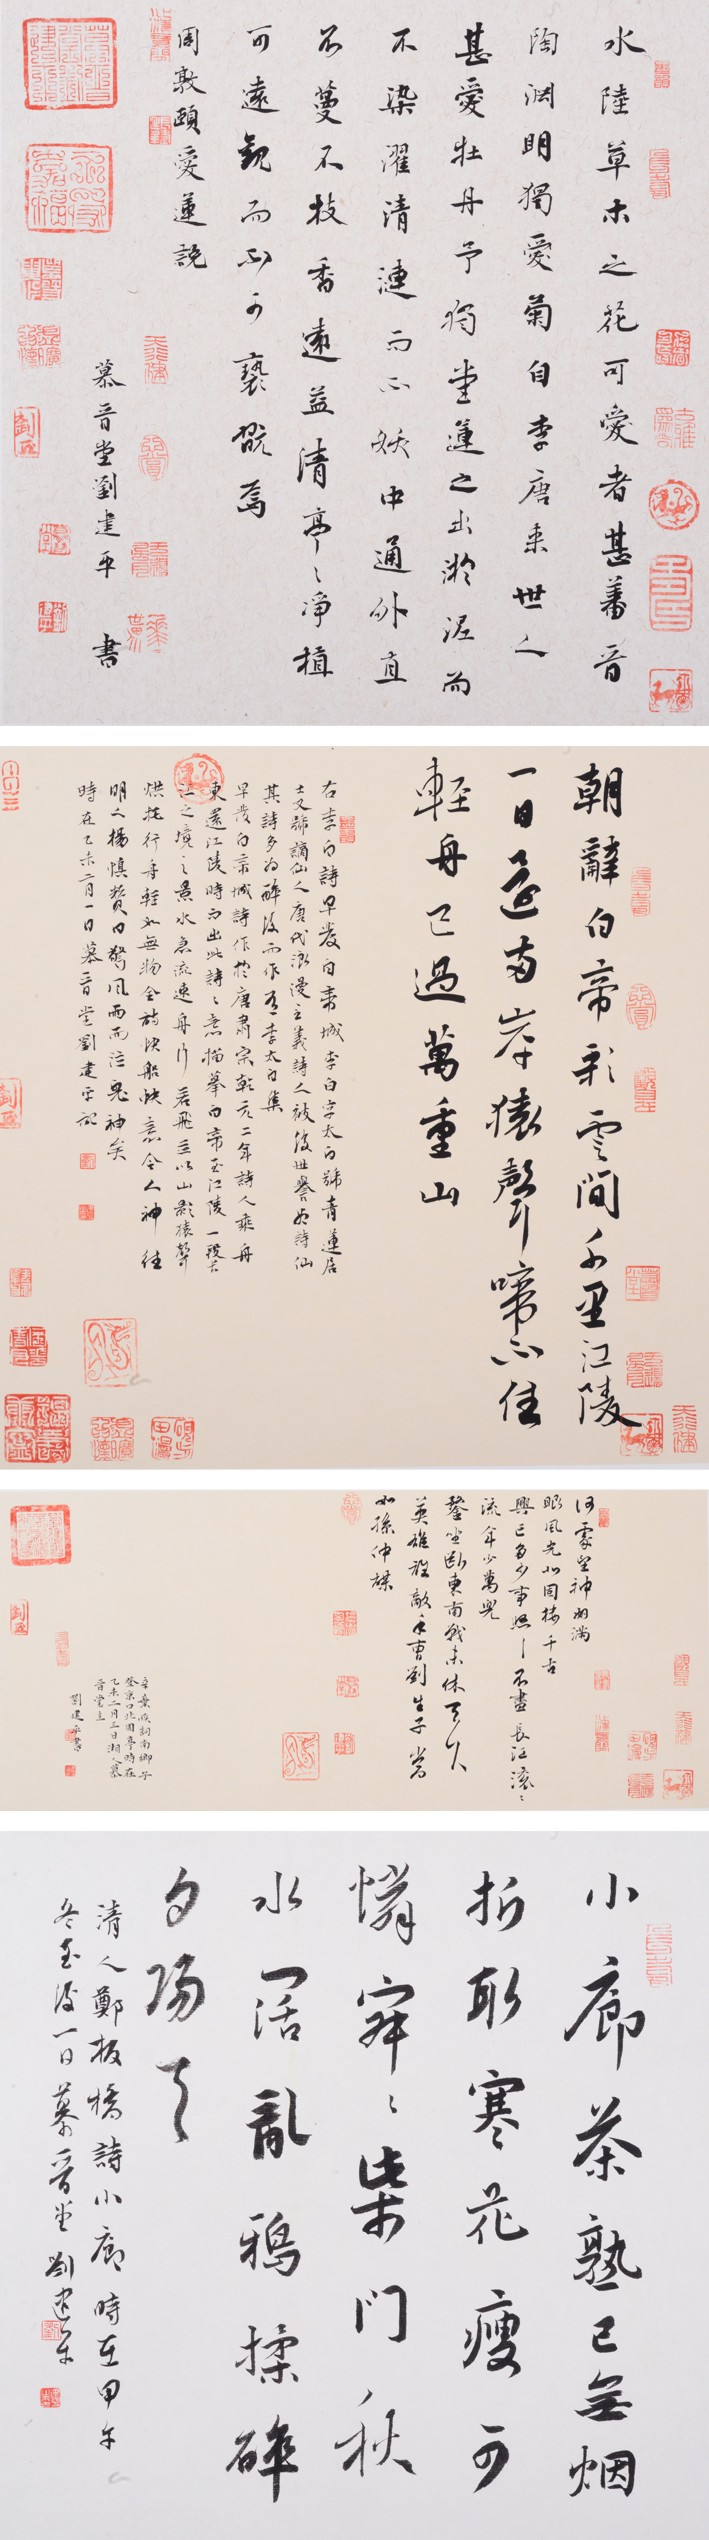 水陸草木之花可愛者甚蕃晉
陶淵明獨愛菊自李唐來世人
甚愛牡丹予獨愛蓮之出淤泥而
不染濯清漣而不妖中通外直
不蔓不枝香遠益清亭〻凈植
可遠觀而不可褻翫焉
周敦頤愛蓮說
慕晉堂劉建平 書
朝辭白帝彩雲間千里江陵
一日還兩岸猿聲啼不住
輕舟已過萬重山
右李白詩早發白帝城李白字太白號青蓮居
士又號謫仙人唐代浪漫主義詩人被後世譽為詩仙
其詩多為醉後而作有李太白集
早發白帝城詩作於唐肅宗乾元二年詩人乘舟
東還江陵時而出此詩〻意描摹白帝至江陵一段長
江之境之景水急流速舟行若飛並以山影猿聲
烘托行舟輕如無物全詩快船快意令人神往
明人楊慎贊曰驚風雨而泣鬼神矣
時在乙未二月一日慕晉堂劉建平記
何處望神州滿
眼風光北固樓千古
興亡多少事悠〻不盡長江滾〻
流年少萬兜
鍪坐斷東南戰未休天下
英雄誰敵手曹劉生子當
如孫仲謀
辛棄疾詞南鄉子
登京口北固亭時在
乙未二月三日湖人慕
晉堂主
劉建平書
小廊茶熟已無烟
折取寒花瘦可
憐寂〻柴門秋
水闊亂鴉揉碎
夕陽天
清人鄭板橋詩小廊時在甲午
冬至後一日慕晉堂劉建平